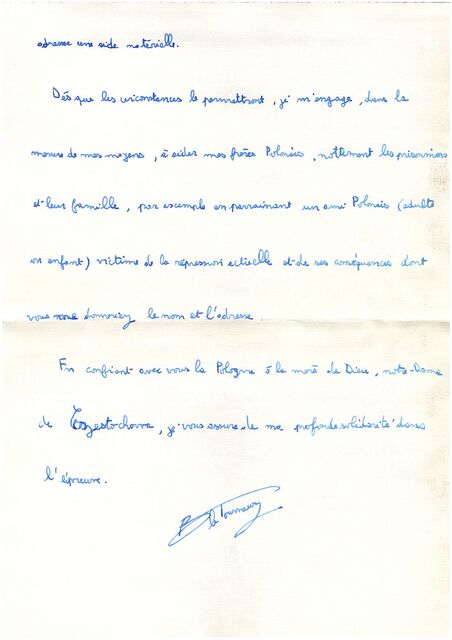 adresser une aide matérielle.
Dès que les circonstances le permettront, je m'engage, dans la
mesure de mes moyens, à aider mes frères Polonais, notamment les prisonniers
et leur famille, par exemple en parrainant un ami Polonais (adulte
ou enfant) victime de la répression actuelle et de ses conséquences dont
vous me donnerez le nom et l'adresse.
En confiant avec vous la Pologne à la mère de Dieu, notre-Dame
de Czestochowa, je vous assure de ma profonde solidarité dans
l'épreuve.
B le Tourneurs